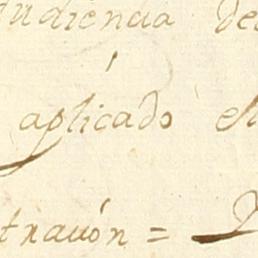 audiencia de
aplicado el
trauón =